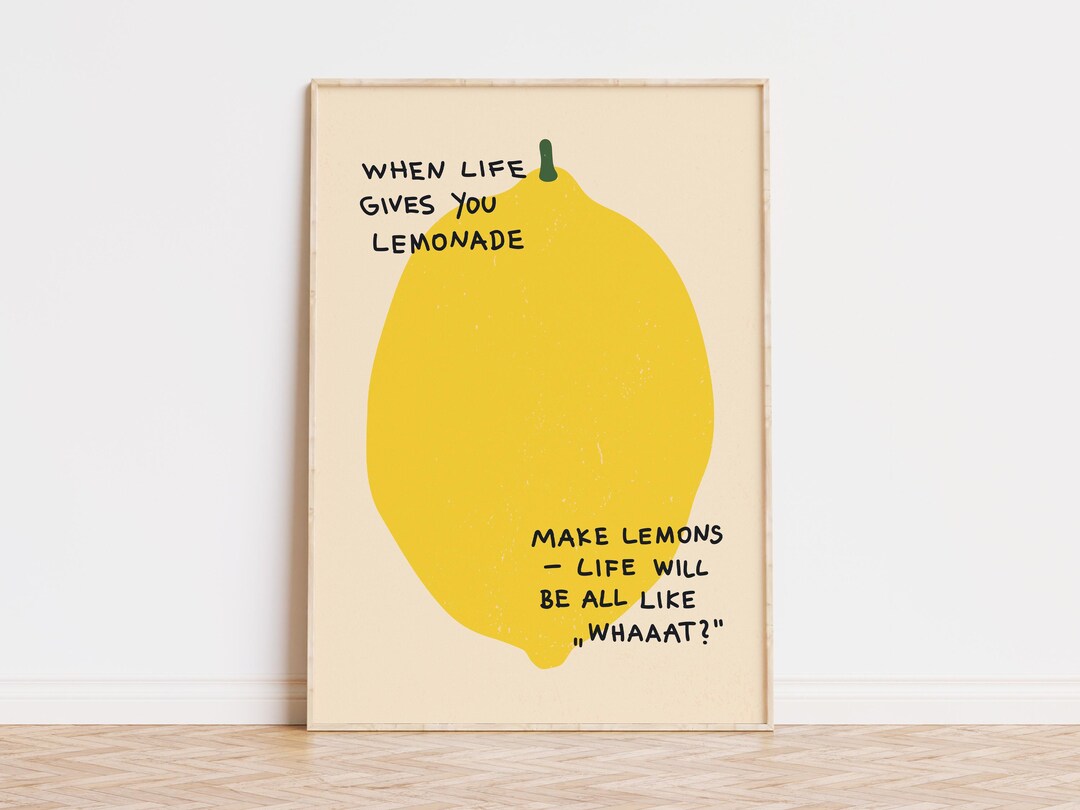 WHEN LIFE
GIVES YOU
LEMONADE
MAKE LEMONS
– LIFE WILL
BE ALL LIKE
„WHAAAT?"